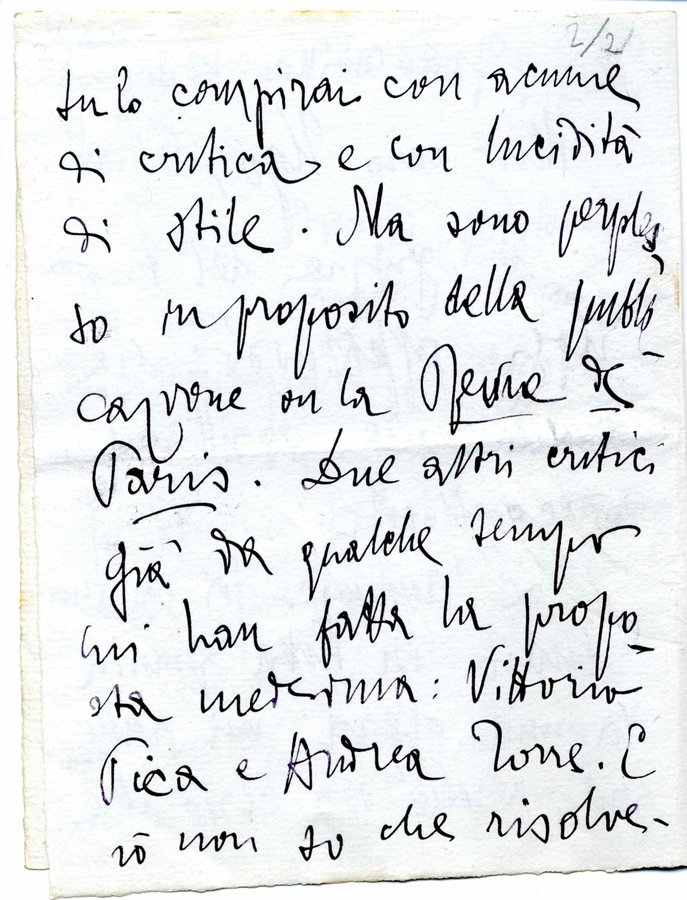 2/2
tu lo compirai con acume
di critica e con lucidità
di stile. Ma sono perples
so in proposito della pubbli
cazione su la Revue de
Paris. Due altri critici
già da qualche tempo
mi han fatta la propo-
sta medesima: Vittorio
Pica e Andrea Torre. E
io non so che risolve-